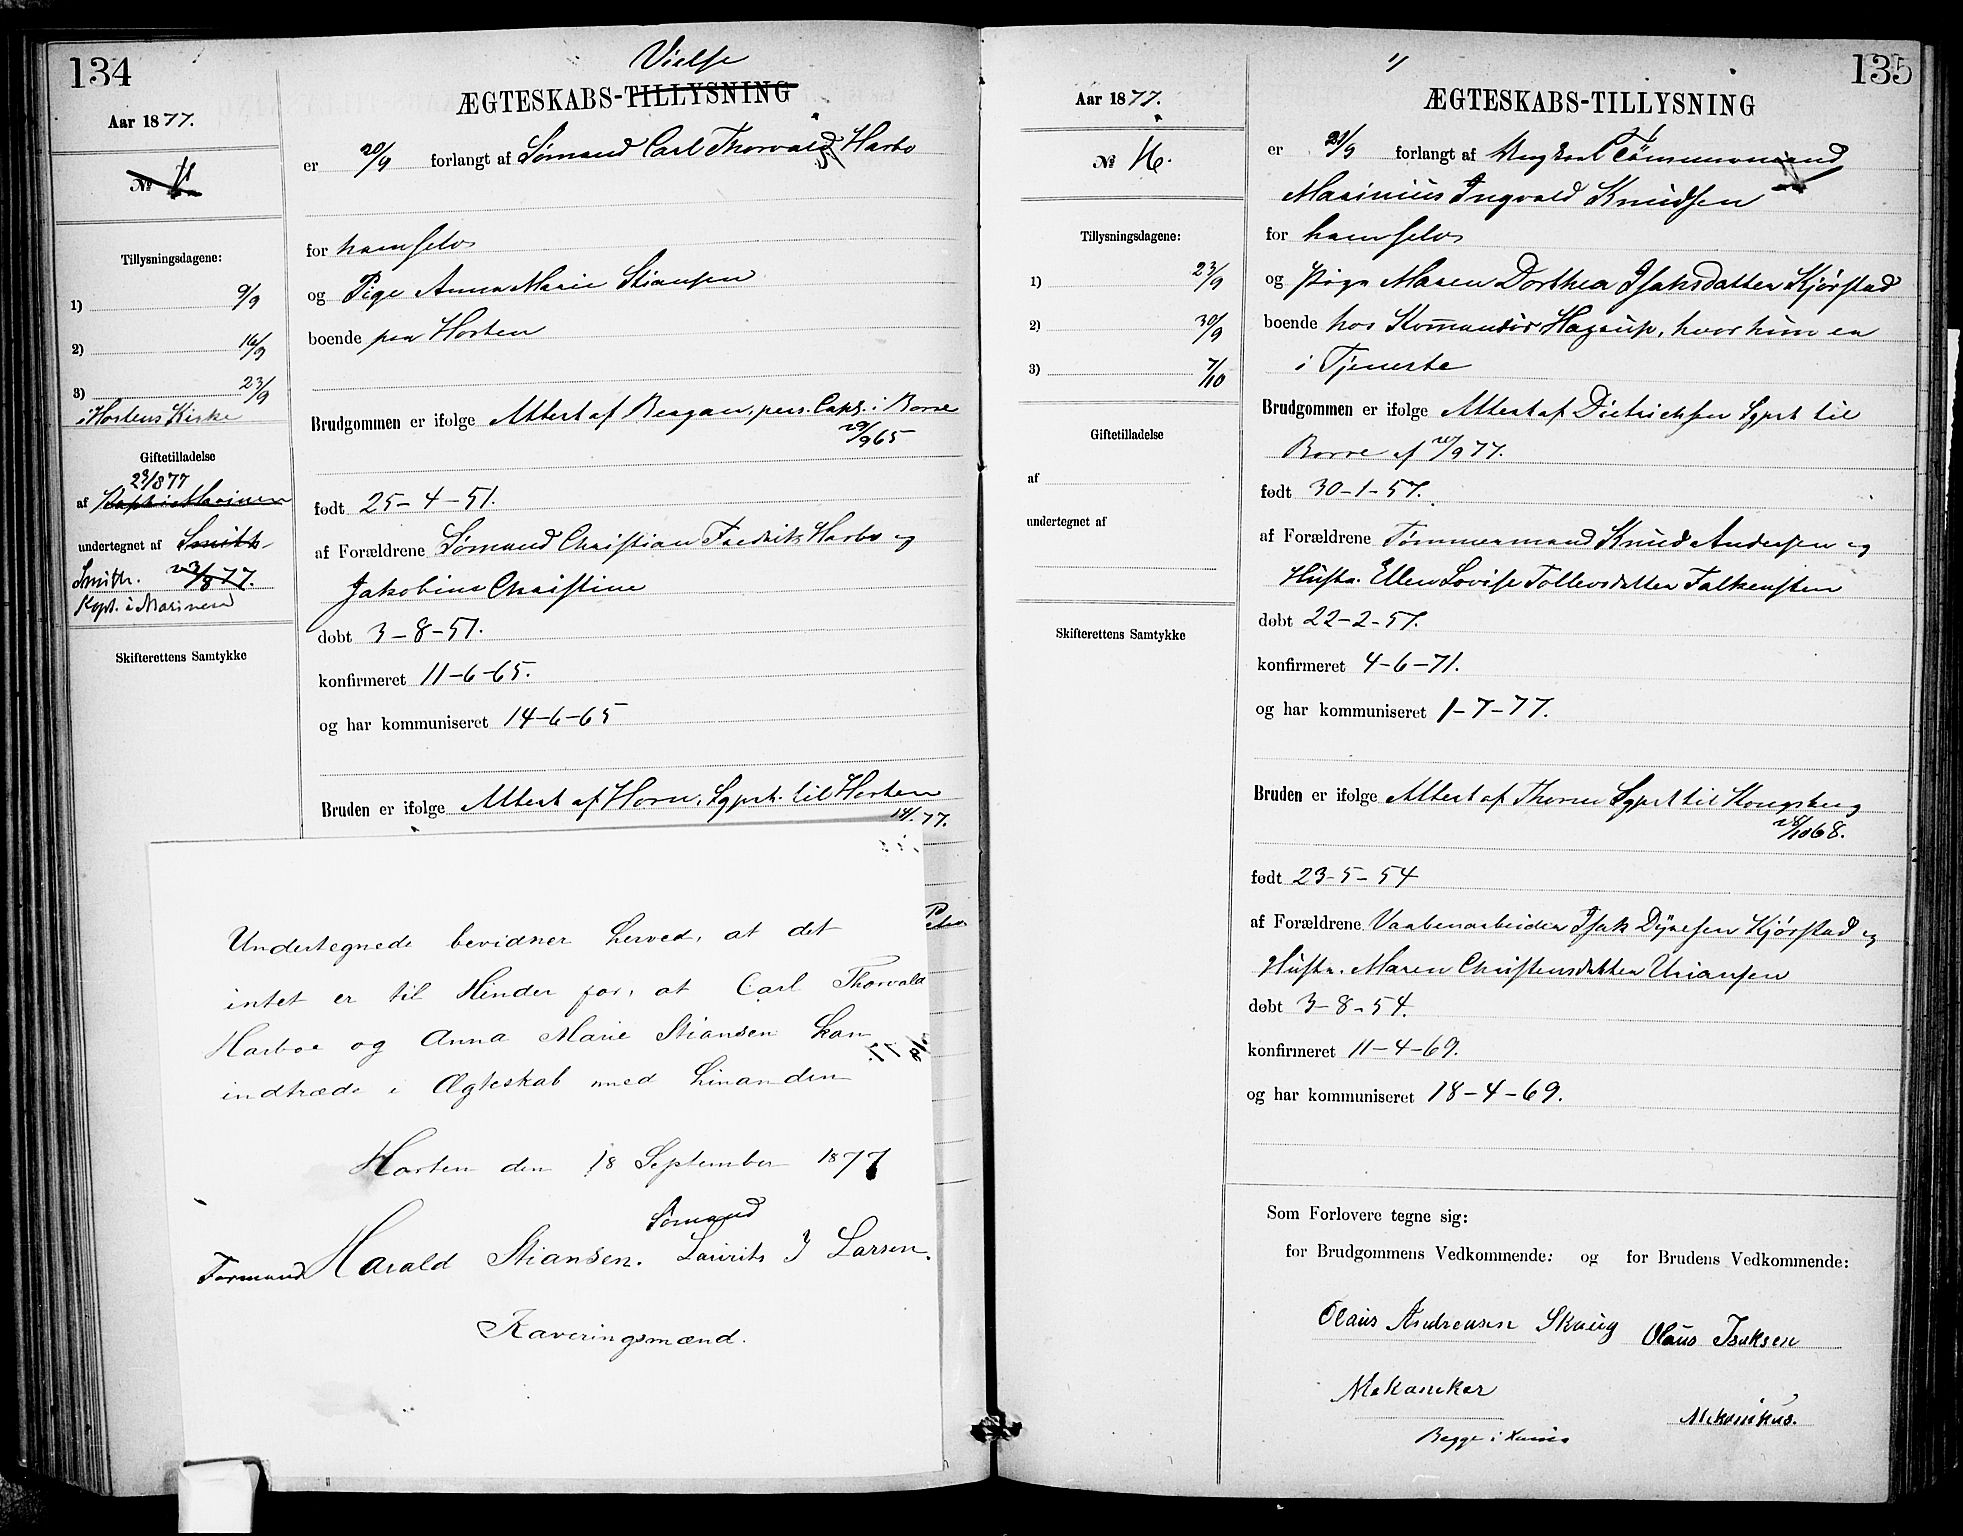 134
Aar 1877.
№
Tillysningsdagene:
1) 9/9
2) 16/9
3) 23/9
i Hortens Kirke
Giftetilladelse
23/8 77
af Kapt i Marinen
undertegnet af Smith
Smith. 23/8 77.
Kapt. i Marinen
Skifterettens Samtykke
Vielse
ÆGTESKABS-TILLYSNING
er 20/9 forlangt af Sømand Carl Thorvald Harbo
for ham selv
og Pige Anna Marie Stiansen
boende paa Horten
Brudgommen er ifølge Attest af pers. Cap. i Borre
29/9 65
født 25-4-51.
af Forældrene Sømand Christian Fredrik Harbo og
Jakobine Christine
døbt 3-8-51.
konfirmeret 11-6-65.
og har kommuniseret 14-6-65
Bruden er ifølge Attest af Horn, Sgprst. til Horten
77.
Undertegnede bevidner herved, at det
intet er til Hinder for, at Carl Thorvald
Harboe og Anna Marie Stiansen kan
indtræde i Ægteskab med hinanden
Horten den 18 September 1877
Sømand
Formand Harald Stiansen. Laurits J Larsen.
Kaveringsmænd.
135
Aar 1877.
№ 16.
Tillysningsdagene:
1) 23/9
2) 30/9
3) 7/10
Giftetilladelse
af
undertegnet af
Skifterettens Samtykke
ÆGTESKABS-TILLYSNING
er 21/9 forlangt af Ungkarl Tømmermand
Marinius Ingvald Knudsen
for ham selv
og Pige Maren Dorthea Isaksdatter Kjørstad
boende hos Komandør Hagerup, hvor hun er
i Tjeneste
Brudgommen er ifølge Attest af Dietrichsen Sgprst til
Borre af 20/9 77.
født 30-1-57.
af Forældrene Tømmermand Knud Andersen og
Hustr. Ellen Lovise Tollevsdatter Falkensten
døbt 22-2-57.
konfirmeret 4-6-71.
og har kommuniseret 1-7-77.
Bruden er ifølge Attest af Thorne Sgprst til Kongsberg
28/10 68.
født 23-5-54
af Forældrene Vaabenarbeider Isak Dyresen Kjørstad og
Hustr. Maren Christensdatter Uriansen
døbt 3-8-54.
konfirmeret 11-4-69.
og har kommuniseret 18-4-69.
Som Forlovere tegne sig:
for Brudgommens Vedkommende: og for Brudens Vedkommende:
Olaus Andreasen Skaug Olaus Isaksen
Mekaniker
Mekanikus.
Begge i